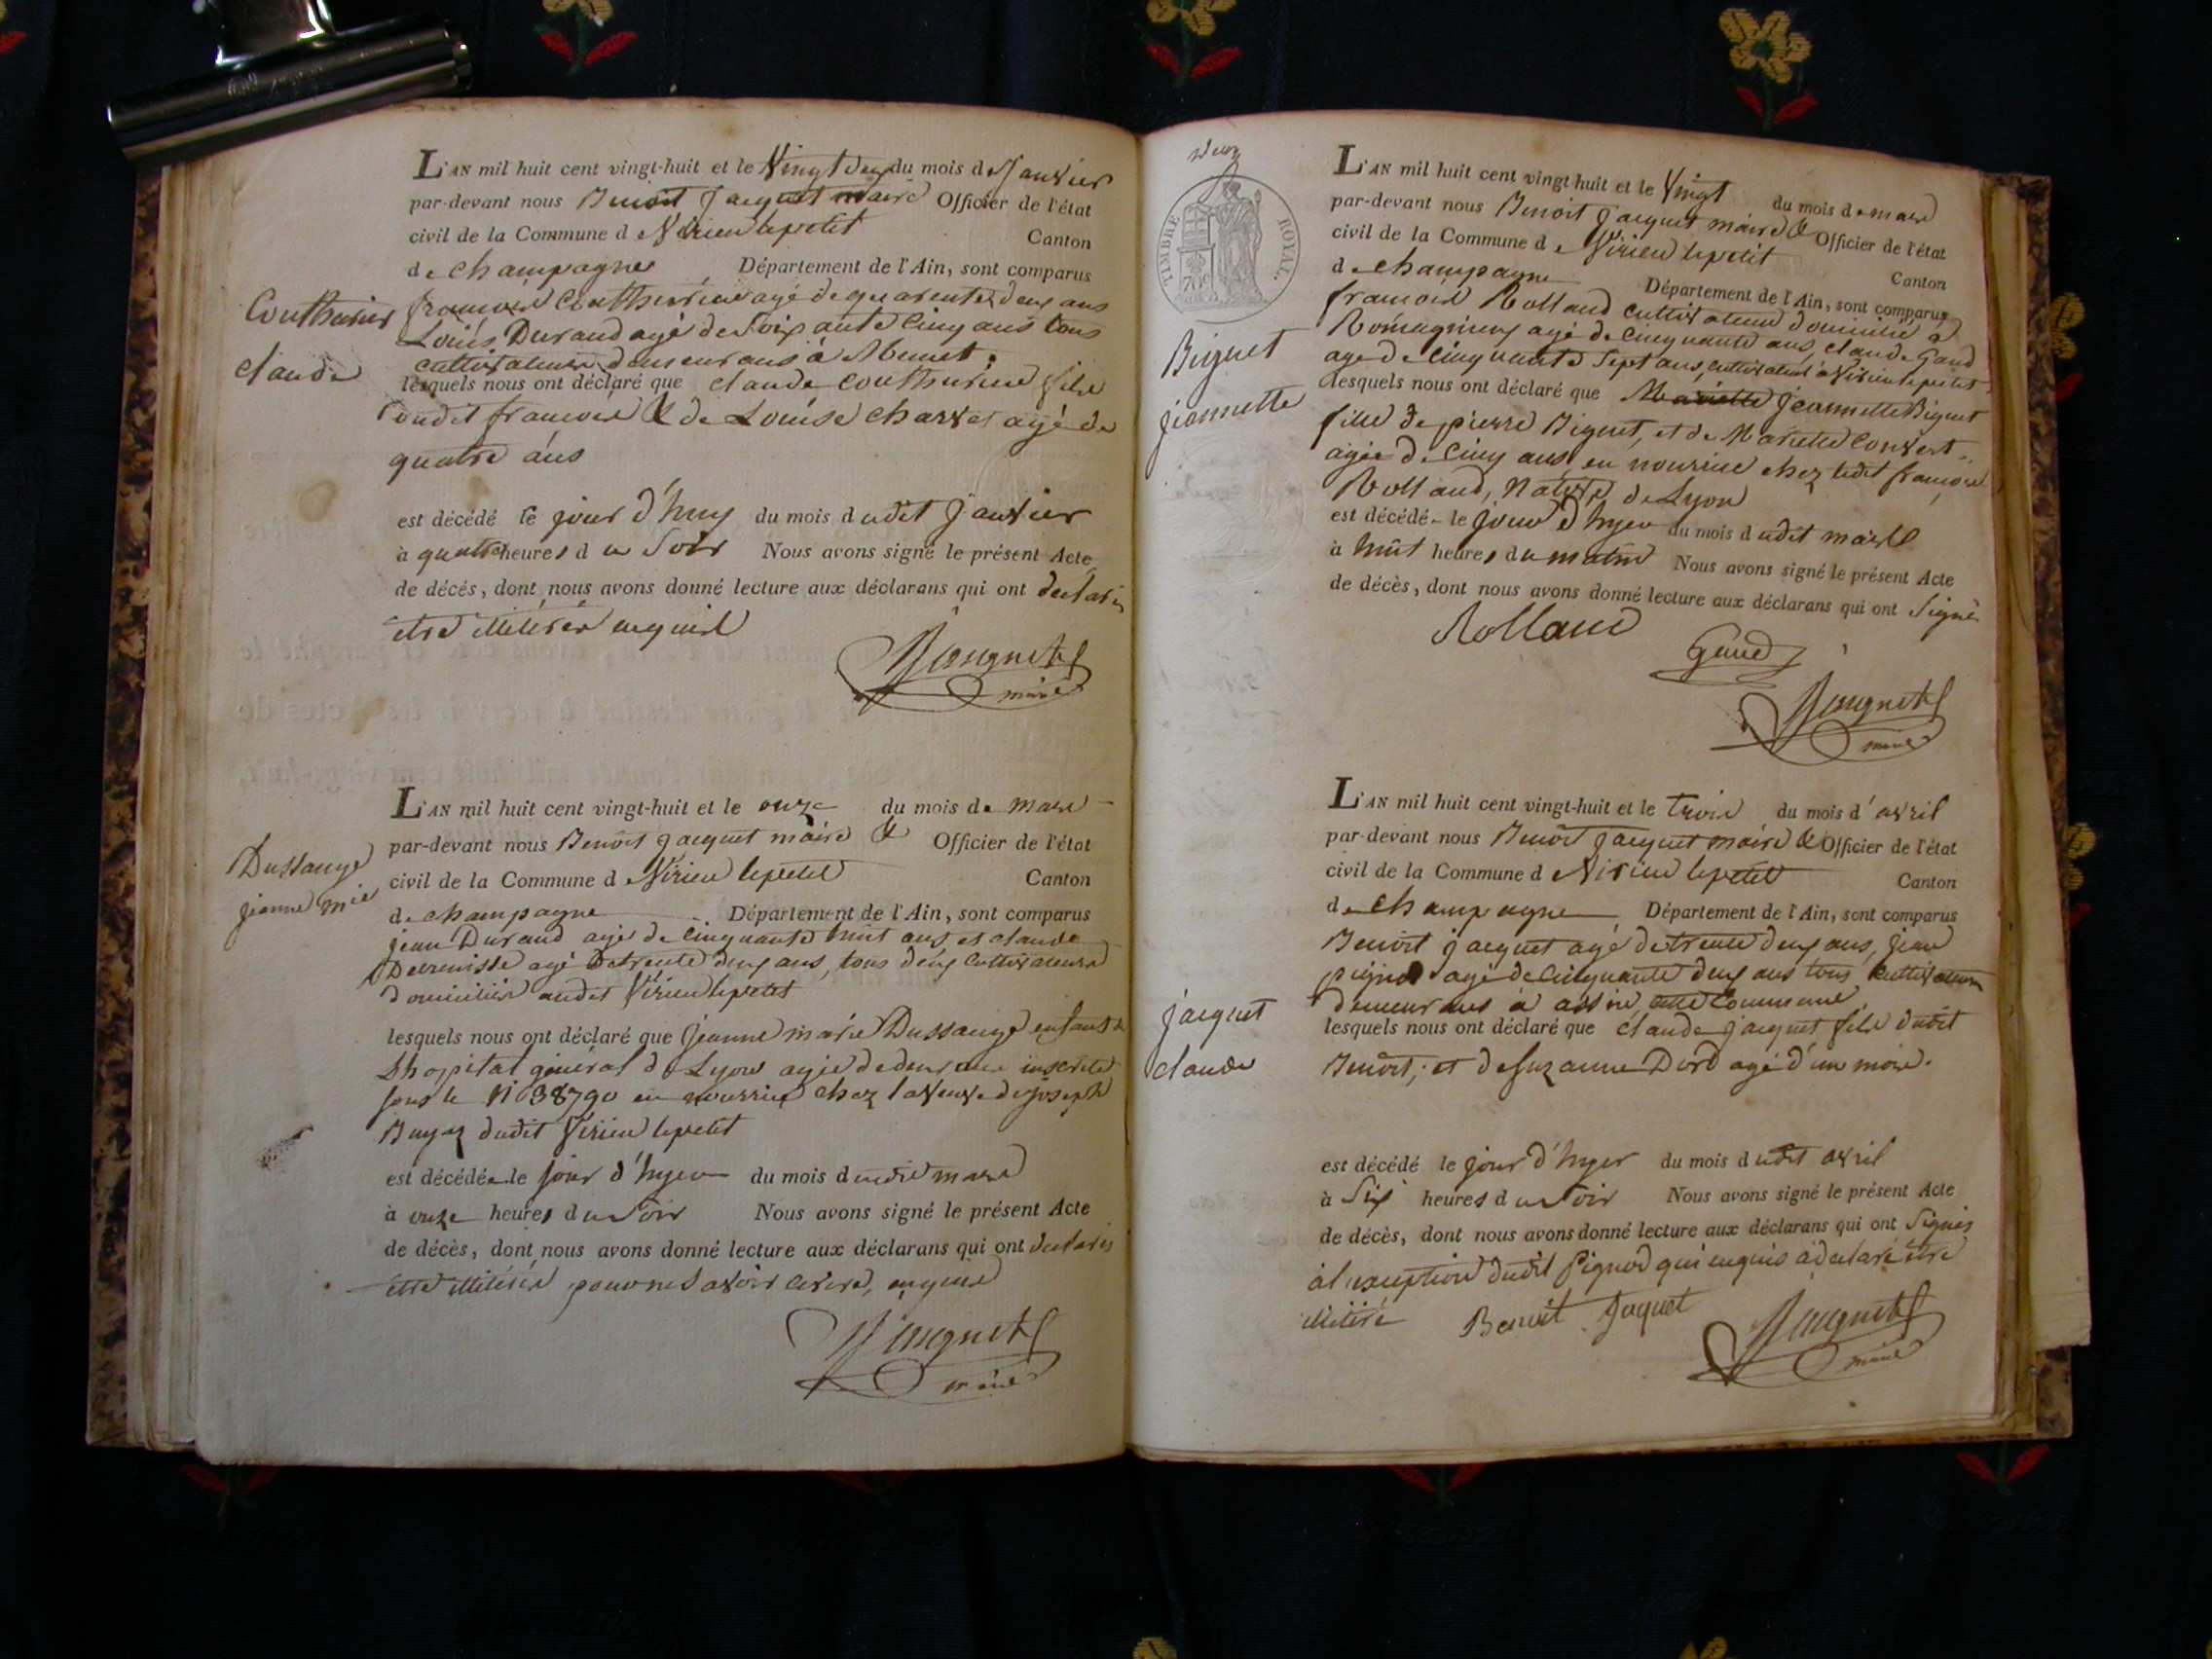 L'AN mil huit cent vingt-huit et le Vingt deux du mois de Janvier
par-devant nous Benoit Jacquet maire Officier de l'état
civil de la Commune de Virieu lepetit Canton
de champagne Département de l'Ain, sont comparus
Couthurier
francois Couthurier agé de quarente deux ans
Louis Durand agé de Soixante Cinq ans tous
claude
cultivateurs demeurans à Munet.
lesquels nous ont déclaré que claude Couthurier fils
dudit francois & de Louise Charvet agé de
quatre ans
est décédé le jour d'huy du mois dudit Janvier
à quatre heures du Soir Nous avons signé le présent Acte
de décés, dont nous avons donné lecture aux déclarans qui ont declarés
etre illitérés enquis
Jacquet
maire
L'AN mil huit cent vingt-huit et le onze du mois de mars
par-devant nous Benoit Jacquet maire & Officier de l'état
Dussauge
civil de la Commune de Virieu lepetit Canton
jeanne mie
de champagne Département de l'Ain, sont comparus
jean Durand agé de Cinquante huit ans, et claude
agé de trente deux ans, tous deux Cultivateurs
domiciliés audit Virieu lepetit
lesquels nous ont déclaré que jeanne marie Dussauge enfant de
Lhospital général de Lyon agée de deux ans inscrite
sous le N° 38790 en nourrice chez la veuve de joseph
dudit Virieu lepetit
est décédée le jour d'hyer du mois dudit mars
à onze heures du Soir Nous avons signé le présent Acte
de décès, dont nous avons donné lecture aux déclarans qui ont declarés
etre illitérés pour ne Savoir écrire, enquis
Jacquet
maire
TIMBRE ROYAL.
L'AN mil huit cent vingt huit et le Vingt du mois de mars
par-devant nous Benoit Jacquet maire & Officier de l'état
civil de la Commune de Virieu lepetit Canton
de champagne Département de l'Ain, sont comparus
francois Rolland cultivateur domicilié à
Biguet
Romagnieux agé de Cinquante ans, claude Gaud
agé de Cinquante Sept ans, cultivateur à Virieu lepetit
jeannette
lesquels nous ont déclaré que Mariette jeannette Biguet
fille de pierre Biguet, et de Mariette Convert
agée de Cinq ans, en nourrice chez ledit francois
Rolland, native de Lyon
est décédé- le jour d'hyer du mois dudit mars
à huit heures du matin Nous avons signé le présent Acte
de décès, dont nous avons donné lecture aux déclarans qui ont Signés
Rolland
Gaud
Jacquet
maire
L'AN mil huit cent vingt-huit et le trois du mois d'avril
par-devant nous Benoit Jacquet maire & Officier de l'état
civil de la Commune de Virieu lepetit Canton
de champagne Département de l'Ain, sont comparus
Benoit jacquet agé de trente deux ans, jean
pignod agé de Cinquante deux ans tous Cultivateurs
jacquet
demeurans à assin, cette Commune
lesquels nous ont déclaré que claude jacquet fils dudit
claude
Benoit, et de Suzanne Dord agé d'un mois.
est décédé le jour d'hyer du mois dudit avril
à Six heures du Soir Nous avons signé le présent Acte
de décès, dont nous avons donné lecture aux déclarans qui ont Signés
à l'exception dudit Pignod qui enquis a déclaré être
illitéré Benoit Jaquet
Jacquet
maire